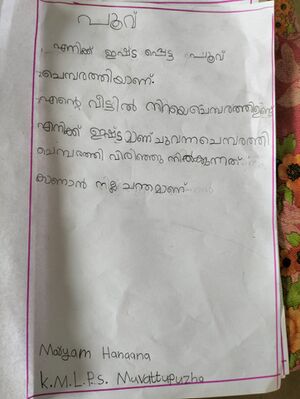 പൂവ്
എനിക്ക് ഇഷ്ട പ്പെട്ട പൂവ്
ചെമ്പരത്തിയാണ്.
എന്റെ വീട്ടിൽ നിറയെചെമ്പരത്തിഉണ്ട്
എനിക്ക് ഇഷ്ടമാണ് ചുവന്നചെമ്പരത്തി
ചെമ്പരത്തി വിരിഞ്ഞു നിൽക്കുന്നത്
കാണാൻ നല്ല ചന്തമാണ്
Maryam Hanaana
K.M.L.P.S. Muvattupuzha